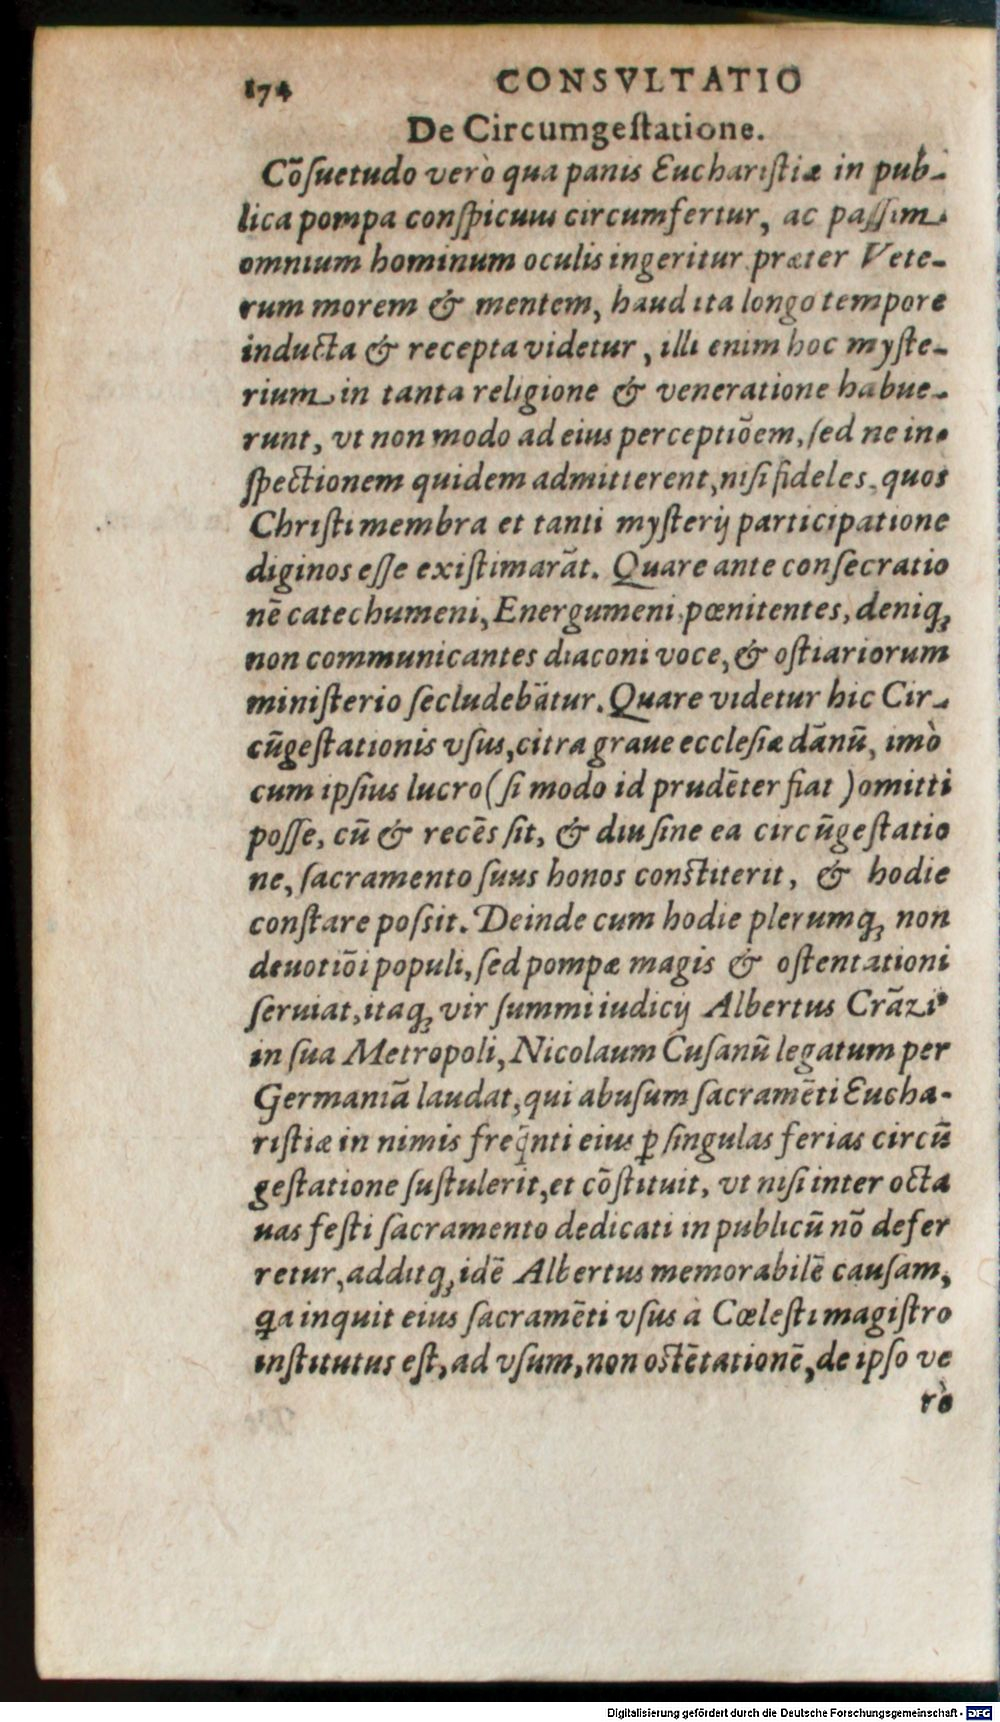 174 CONSVLTATIO
De Circumgeſtatione.
Cõſuetudo verò qua panis Euchariſtiæ in pub-
lica pompa conſpicuus circumfertur, ac paſſim
omnium hominum oculis ingeritur præter Vete-
rum morem & mentem, haud ita longo tempore
inducta & recepta videtur, illi enim hoc myſte-
rium in tanta religione & veneratione habue-
runt, vt non modo ad eius perceptiõem, ſed ne in-
ſpectionem quidem admitterent, niſi fideles, quos
Chriſti membra et tanti myſterij participatione
diginos eſſe exiſtimarãt. Quare ante conſecratio
nẽ catechumeni, Energumeni, pœnitentes, deniq;
non communicantes diaconi voce, & oſtiariorum
miniſterio ſecludebãtur. Quare videtur hic Cir-
cũgeſtationis vſus, citra graue eccleſiæ dãnũ, imò
cum ipſius lucro (ſi modo id prudẽter fiat) omitti
poſſe, cũ & recẽs ſit, & diu ſine ea circũgeſtatio
ne, ſacramento ſuus honos conſtiterit, & hodie
conſtare poſſit. Deinde cum hodie plerumq; non
deuotiõi populi, ſed pompæ magis & oſtentationi
ſeruiat, itaq; vir ſummi iudicij Albertus Crãziꝰ
in ſua Metropoli, Nicolaum Cuſanũ legatum per
Germaniã laudat, qui abuſum ſacramẽti Eucha-
riſtiæ in nimis freq̃nti eius ꝑ ſingulas ferias circũ
geſtatione ſuſtulerit, et cõſtituit, vt niſi inter octa
uas feſti ſacramento dedicati in publicũ nõ defer
retur, additq; idẽ Albertus memorabilẽ cauſam,
q̃a inquit eius ſacramẽti vſus à Cœleſti magiſtro
inſtitutus eſt, ad vſum, non oſtẽtationẽ, de ipſo ve
rò
Digitalisierung gefördert durch die Deutsche Forschungsgemeinschaft - DFG